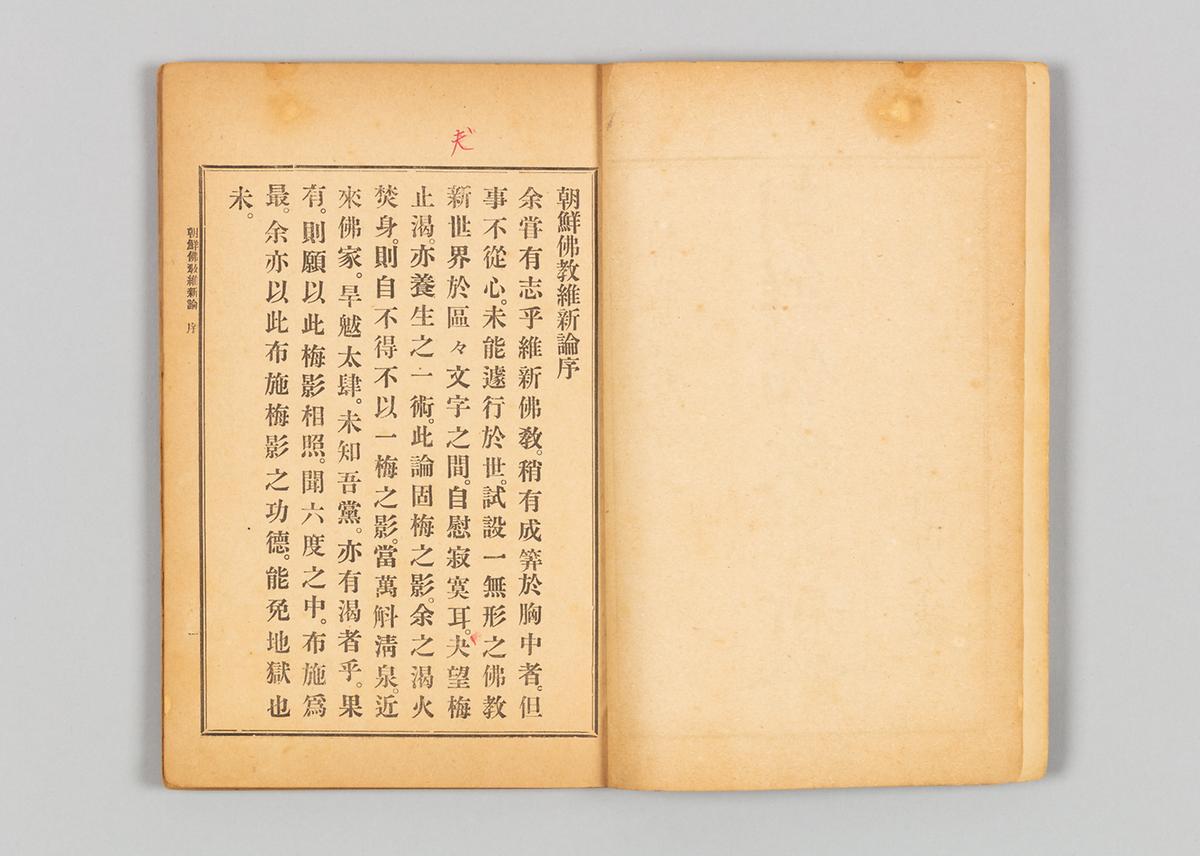 朝鮮佛教維新論序
余甞有志乎維新佛教。稍有成筭於胸中者。但
事不從心。未能遽行於世。試設一無形之佛教
新世界於區々文字之間。自慰寂寞耳。夫望梅
止渴。亦養生之一術。此論固梅之影。余之渴火
焚身。則自不得不以一梅之影。當萬斛淸泉。近
來佛家。旱魃太肆。未知吾黨。亦有渴者乎。果
有。則願以此梅影相照。聞六度之中。布施爲
最。余亦以此布施梅影之功德。能免地獄也
未。
朝鮮佛教維新論　序
一
夫